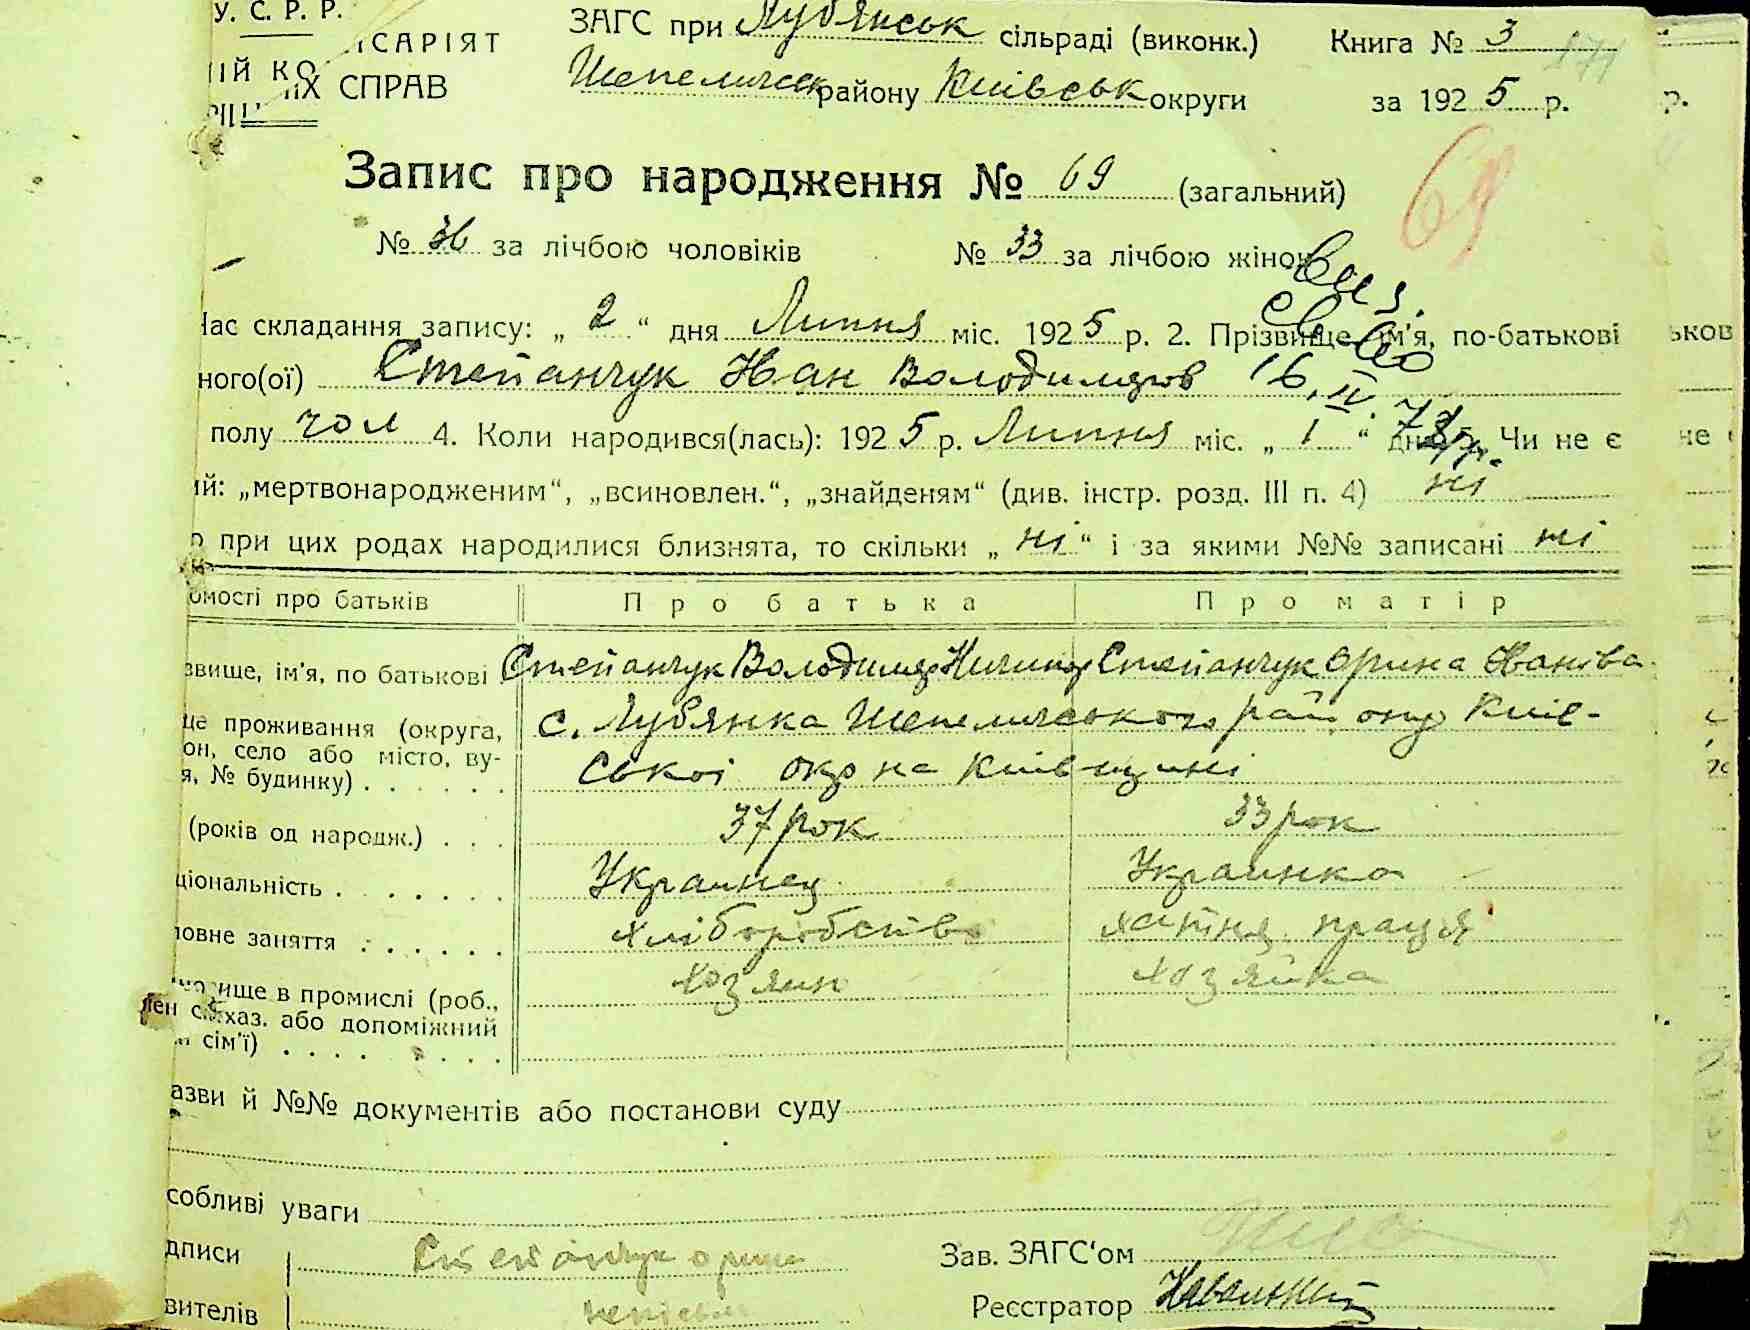 У. С. Р. Р.
ІСАРІЯТ ЗАГС при Лубянськ сільраді (виконк.) Книга № 3 171
ІЙ КО
ІХ СПРАВ Шепелическ району Київськ округи за 1925 р. р.
Запис про народження № 69 (загальний) 69
№ 36 за лічбою чоловіків № 33 за лічбою жінок
Час складання запису: „ 2 “ дня Липня міс. 1925 р. 2. Прізвище ім'я, по-батькові ьков
ного(ої) Степанчук Иван Володимиров 16.IV.
полу чол 4. Коли народився(лась): 1925 р. Липня міс. „ 1 “ дня 5. Чи не є не
ий: „мертвонародженим“, „всиновлен.“, „знайденям“ (див. інстр. розд. III п. 4) ні
о при цих родах народилися близнята, то скільки „ ні “ і за якими №№ записані ні
омості про батьків Про батька Про матір
звище, ім'я, по батькові Степанчук Володимир Степанчук Орина Иванівна
це проживання (округа, с. Лубянка Шепелическького району Київ-
он, село або місто, ву-
я, № будинку) . . . . . . ської окр на Київщині
(років од народж.) . . . 37 рок 33 рок
ціональність . . . . . . Украинец Украинка
ловне заняття . . . . . . хліборобство хатня праця
ище в промислі (роб., хозяин хозяйка
лен сім. хаз. або допоміжний
сім'ї) . . . . . . . .
азви й №№ документів або постанови суду
собливі уваги
дписи Степанчук орина Зав. ЗАГС‘ом
вителів неписьм Реєстратор